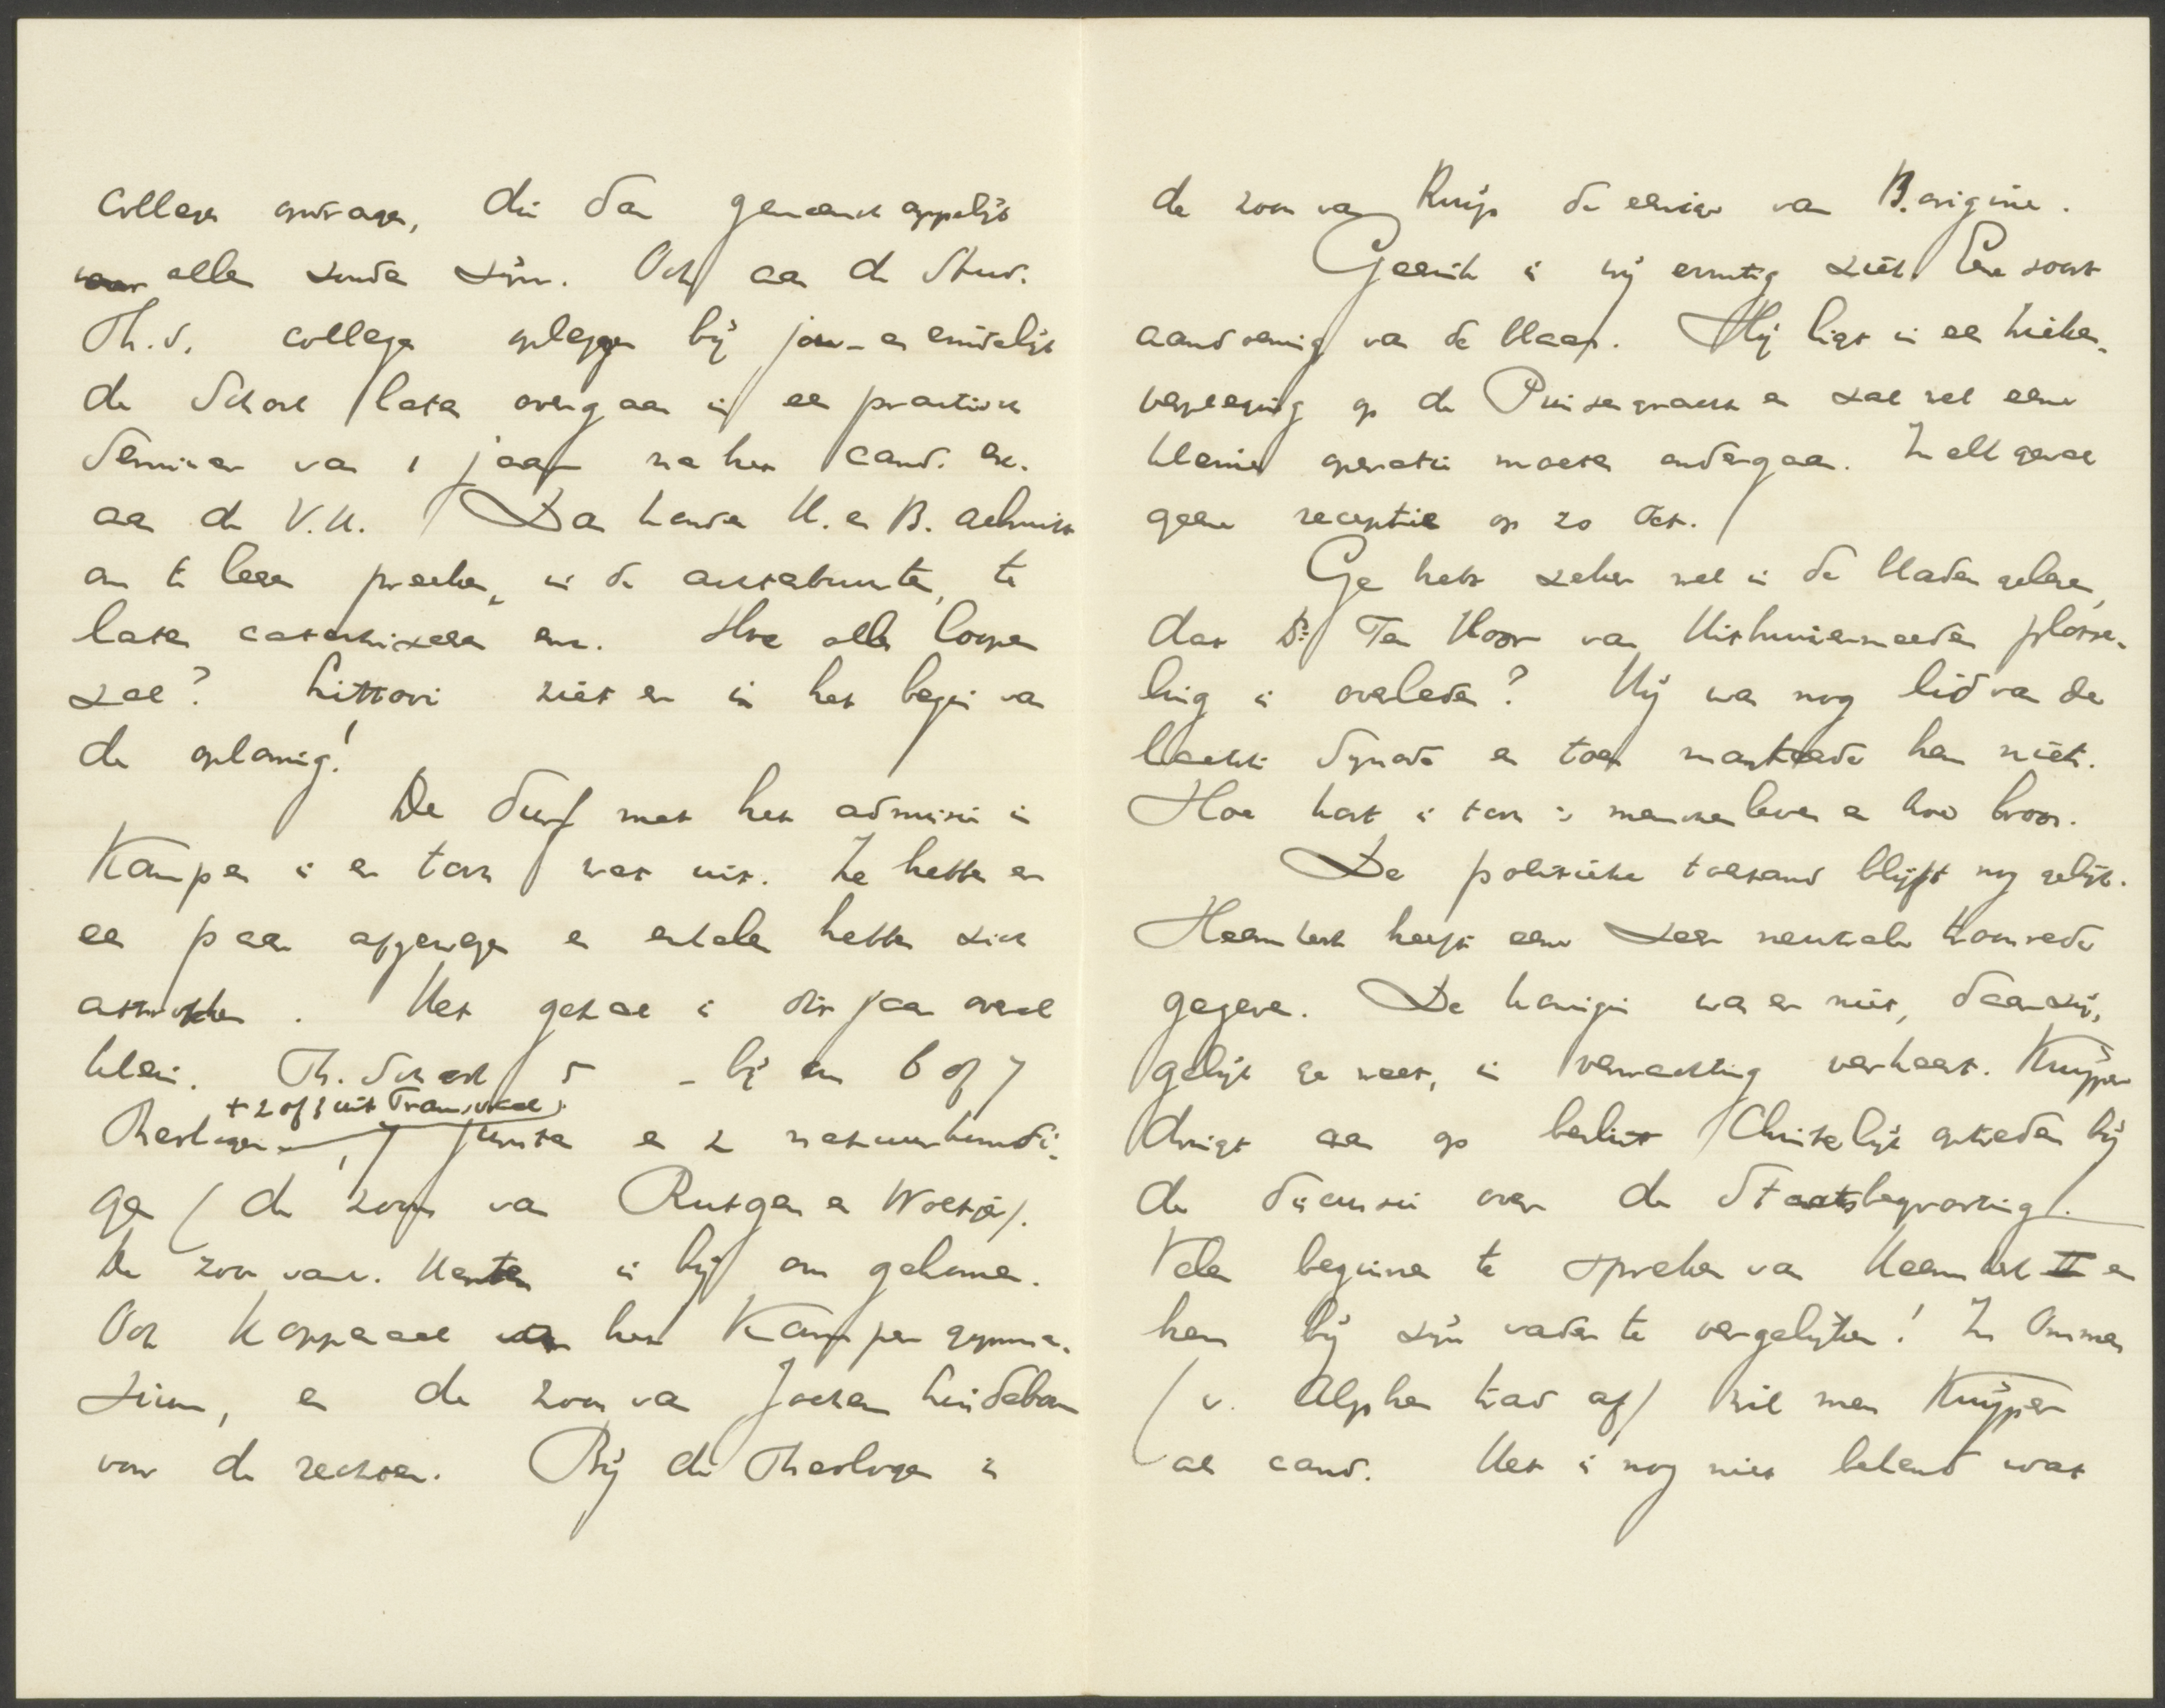 colleges opdragen, die dan gemeenschappelijk
voor allen zouden zijn. Ook aan de Stud.
Th. S. colleges opleggen bij jou – en eindelijk
de School laten overgaan in een practisch
Seminar van 1 jaar na het cand. ex.
aan de V.U. Dan konden H. en B. admiss.
om te leeren preeken, in de
laten catechiseeren enz. Hoe alles loopen
zal? Littooy ziet er in het begin van
de oplossing!
De durf met het admissie in
Kampen is er toch wat uit. Ze hebben er
een paar afgewezen en enkelen hebben zich
. Het getal is dit jaar overal
klein. Th. School 5 – bij ons 6 of 7
+ 2 of 3 uit Transvaal
Theologen, juristen en 2 natuurkundi-
gen (de zoon van Rutgers en Woltjer).
De zoon van is bij ons gekomen.
Ook Koppenaal van het Kamper gymna-
sium, en de zoon van Jochem Lindeboom
voor de rechten. Bij de Theologen is
de zoon van Kuyp de eenige van B. origine.
Geesink is vrij ernstig ziek. Eene soort
aandoening van de blaas. Hij ligt in een zieken-
verpleging op de Prinsengracht en zal wel eene
kleine operatie moeten ondergaan. In elk geval
geene receptie op 20 Oct.
Ge hebt zeker wel in de bladen gelezen,
dat Ds. Ten Hoor van Uithuizermeeden plotse-
ling is overleden? Hij was nog lid van de
laatste Synode en toen mankeerde hem niets.
Hoe kort is toch 's menschen leven en hoe broos.
De politieke toestand blijft nog gelijk.
Heemskerk heeft eene zeer neutrale troonrede
gegeven. De koningin was er niet, daar zij,
gelijk ge weet, in verwachting verkeert. Kuyper
dringt aan op beslist Christelijk optreden bij
de discussie over de Staatsbegrooting.
Velen beginnen te spreken van Heemskerk II en
hem bij zijn vader te vergelijken! In Ommen
(v. Alphen trad af) wil men Kuyper
als cand. Het is nog niet bekend wat